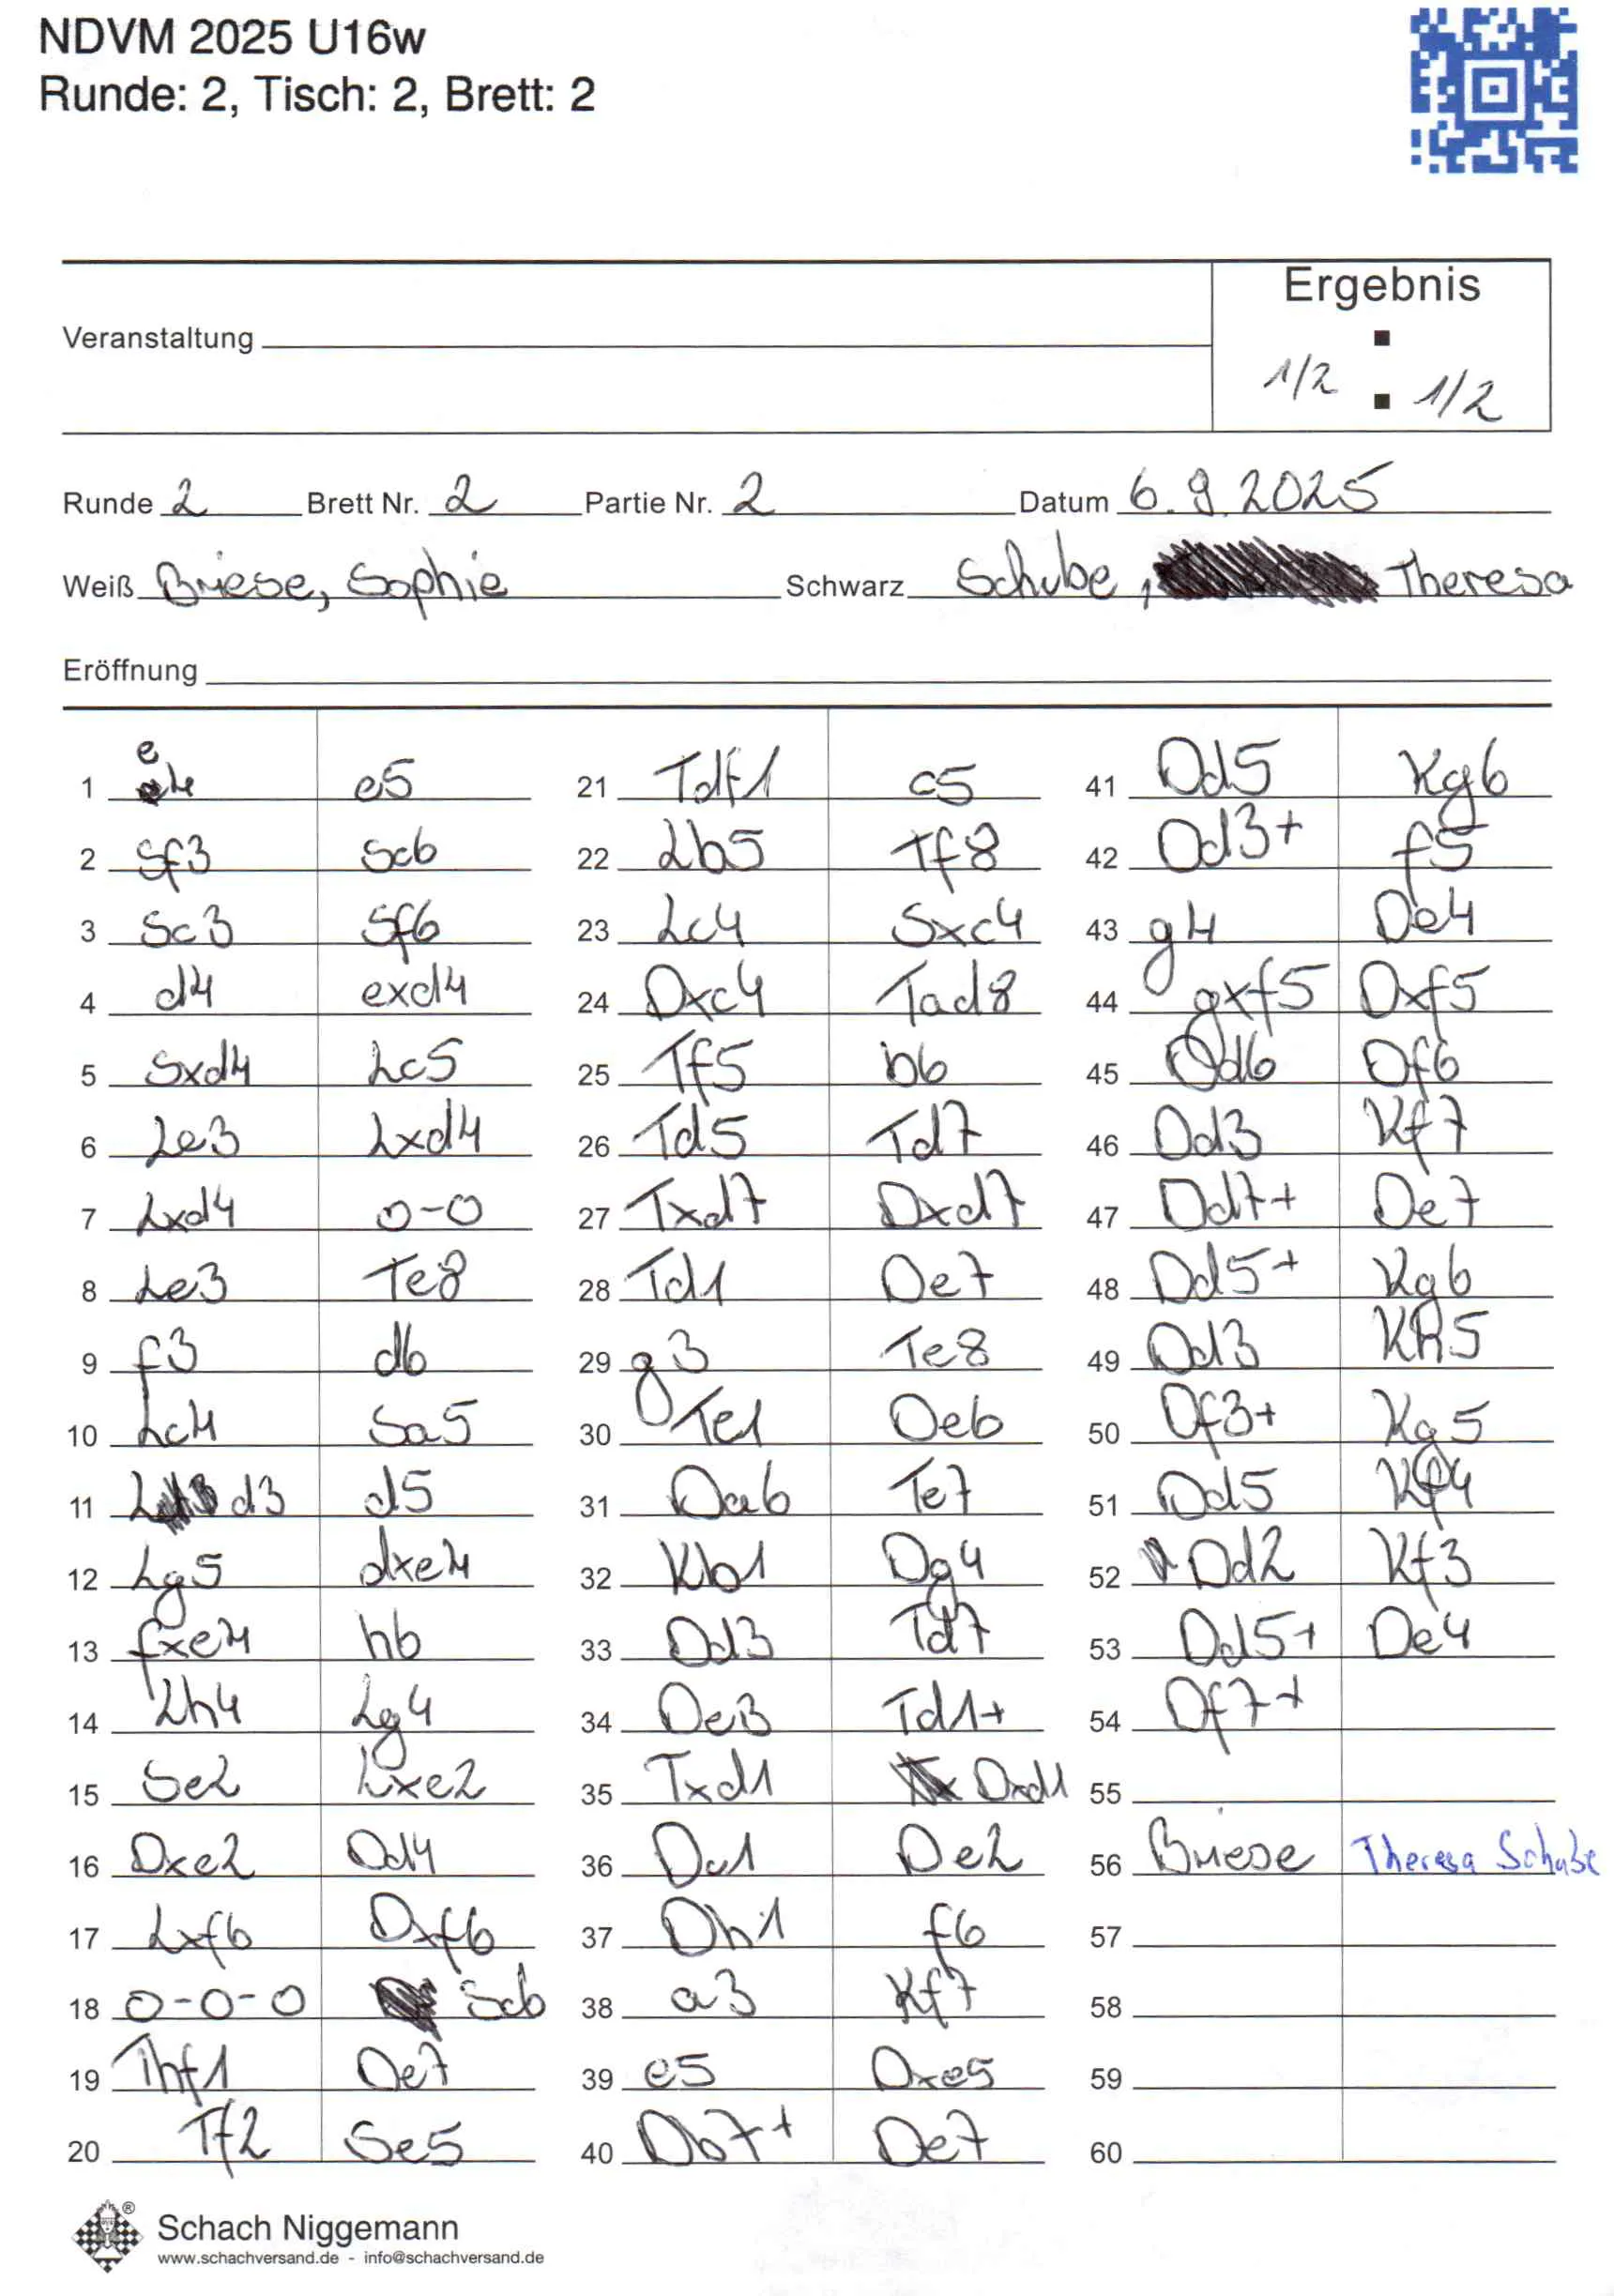 NDVM 2025 U16w
Runde: 2, Tisch: 2, Brett: 2
Ergebnis
Veranstaltung
1/2 : 1/2
Runde 2 Brett Nr. 2 Partie Nr. 2 Datum 6.9.2025
Weiß Briese, Sophie Schwarz Schube, Theresa
Eröffnung
1 e4 e5
2 Sf3 Sc6
3 Sc3 Sf6
4 d4 exd4
5 Sxd4 Lc5
6 Le3 Lxd4
7 Lxd4 0-0
8 Le3 Te8
9 f3 d6
10 Lc4 Sa5
11 Ld3 d5
12 Lg5 dxe4
13 fxe4 h6
14 Lh4 Lg4
15 Se2 Lxe2
16 Dxe2 Dd4
17 Lxf6 Dxf6
18 0-0-0 Sc6
19 Thf1 De7
20 Tf2 Se5
21 Tdf1 c5
22 Lb5 Tf8
23 Lc4 Sxc4
24 Dxc4 Tad8
25 Tf5 b6
26 Td5 Td7
27 Txd7 Dxd7
28 Td1 De7
29 g3 Te8
30 Te1 De6
31 Da6 Te7
32 Kb1 Dg4
33 Dd3 Td7
34 De3 Td1+
35 Txd1 Dxd1
36 Dc1 De2
37 Dh1 f6
38 a3 Kf7
39 e5 Dxe5
40 Db7+ De7
41 Dd5 Kg6
42 Dd3+ f5
43 g4 De4
44 gxf5 Dxf5
45 Dd6 Df6
46 Dd3 Kf7
47 Dd7+ De7
48 Dd5+ Kg6
49 Dd3 Kh5
50 Df3+ Kg5
51 Dd5 Kf4
52 Dd2 Kf3
53 Dd5+ De4
54 Df7+
55
56 Briese Theresa Schube
57
58
59
60
Schach Niggemann
www.schachversand.de - info@schachversand.de